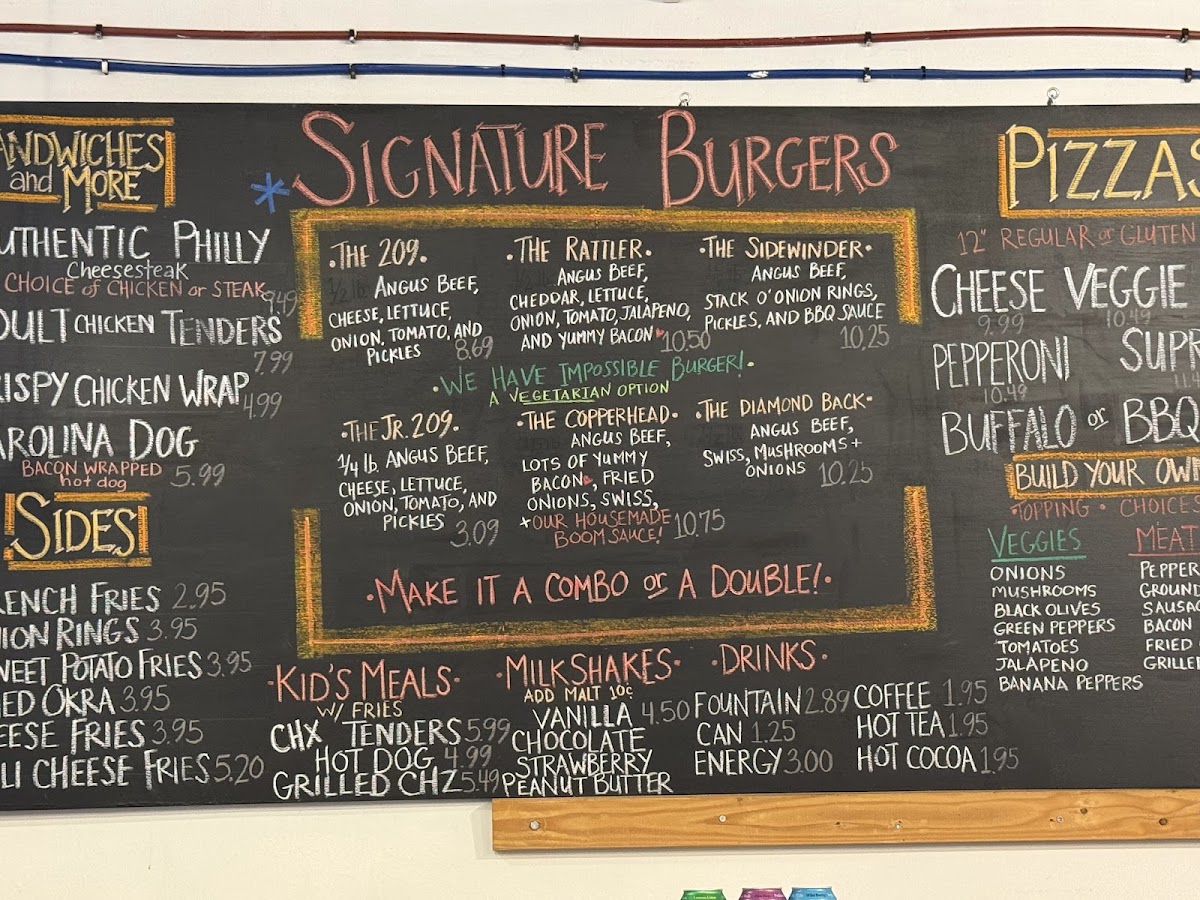 ANDWICHES
and MORE
UTHENTIC PHILLY
Cheesesteak
CHOICE of CHICKEN or STEAK 9.49
DULT CHICKEN TENDERS
7.99
ISPY CHICKEN WRAP
4.99
AROLINA DOG
BACON WRAPPED
hot dog 5.99
SIDES
RENCH FRIES 2.95
NION RINGS 3.95
WEET POTATO FRIES 3.95
IED OKRA 3.95
EESE FRIES 3.95
LI CHEESE FRIES 5.20
* SIGNATURE BURGERS
•THE 209•
1/2 lb. ANGUS BEEF,
CHEESE, LETTUCE,
ONION, TOMATO, AND
PICKLES 8.69
•THE RATTLER•
ANGUS BEEF,
CHEDDAR, LETTUCE,
ONION, TOMATO, JALAPENO,
AND YUMMY BACON 10.50
•THE SIDEWINDER•
ANGUS BEEF,
STACK O' ONION RINGS,
PICKLES, AND BBQ SAUCE
10.25
•WE HAVE IMPOSSIBLE BURGER!•
A VEGETARIAN OPTION
•THE JR. 209•
1/4 lb. ANGUS BEEF,
CHEESE, LETTUCE,
ONION, TOMATO, AND
PICKLES
3.09
•THE COPPERHEAD•
ANGUS BEEF,
LOTS OF YUMMY
BACON, FRIED
ONIONS, SWISS,
+OUR HOUSEMADE
BOOM SAUCE! 10.75
•THE DIAMOND BACK•
ANGUS BEEF,
SWISS, MUSHROOMS +
ONIONS 10.25
•MAKE IT A COMBO or A DOUBLE!•
•KID'S MEALS•
W/ FRIES
CHX TENDERS 5.99
HOT DOG 4.99
GRILLED CHZ 5.49
•MILKSHAKES•
ADD MALT 10¢
VANILLA 4.50
CHOCOLATE
STRAWBERRY
PEANUT BUTTER
•DRINKS•
FOUNTAIN 2.89
CAN 1.25
ENERGY 3.00
COFFEE 1.95
HOT TEA 1.95
HOT COCOA 1.95
PIZZAS
12" REGULAR or GLUTEN
CHEESE VEGGIE
9.99 10.49
PEPPERONI SUPR
10.49
BUFFALO or BBQ
BUILD YOUR OWN
•TOPPING • CHOICES
VEGGIES
ONIONS
MUSHROOMS
BLACK OLIVES
GREEN PEPPERS
TOMATOES
JALAPENO
BANANA PEPPERS
MEAT
PEPPER
GROUND
SAUSA
BACON
FRIED
GRILLE